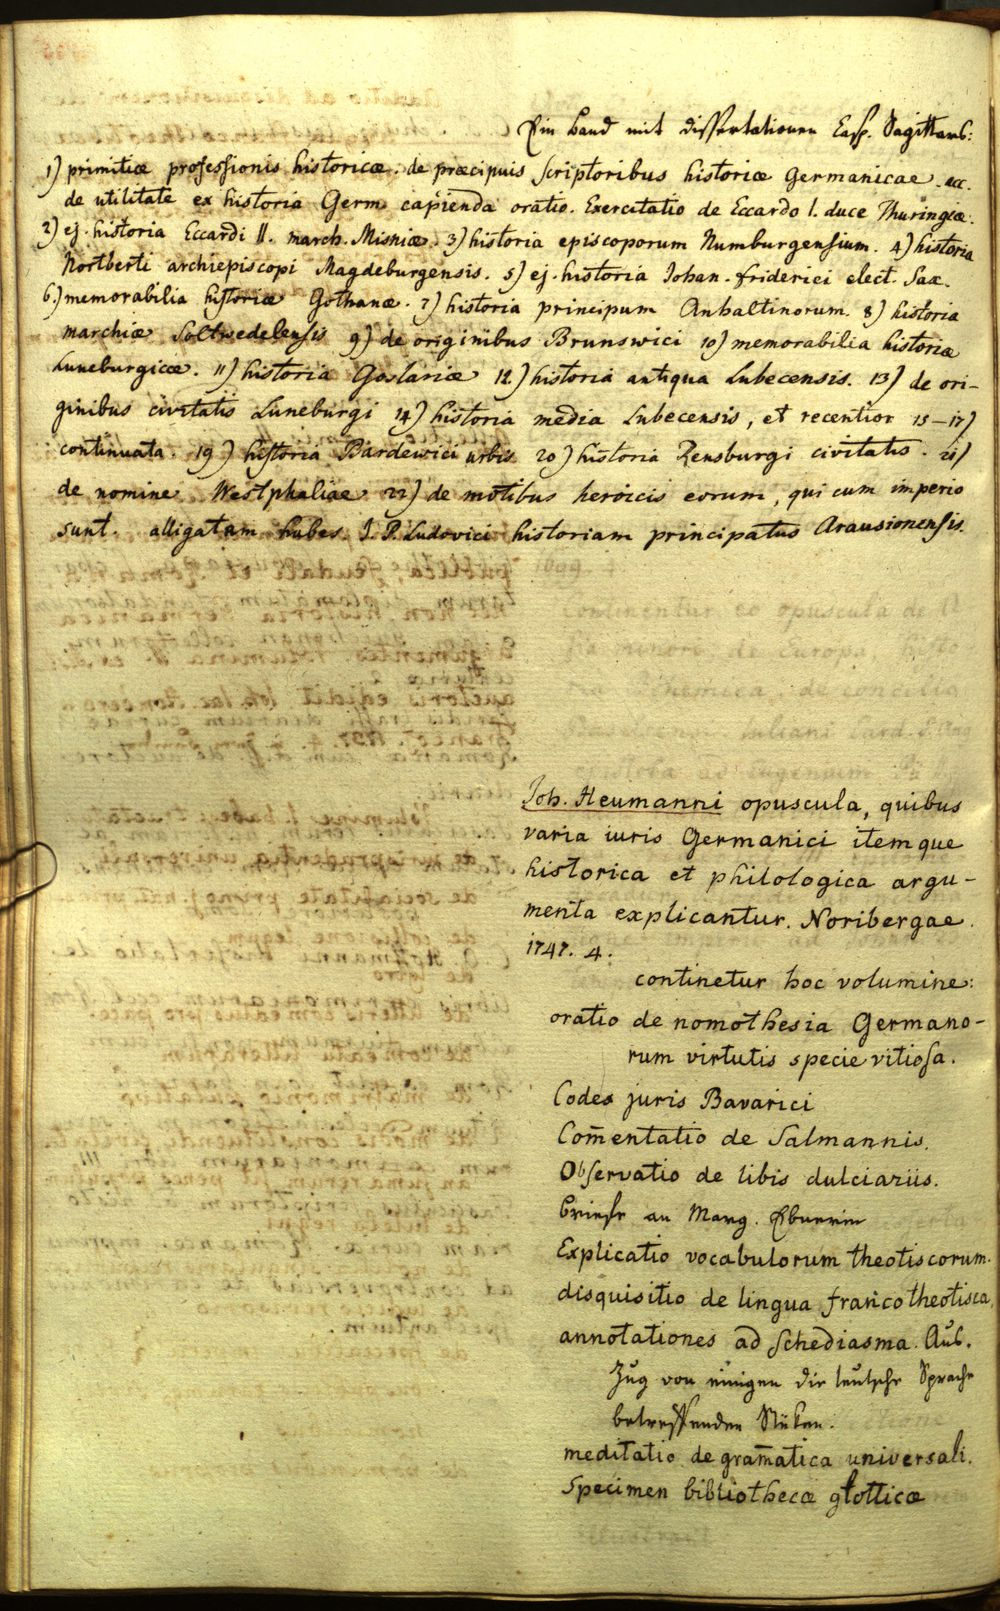 Ein Band mit dissertationen Casp. Sagittars:
1) primitiæ professionis historicæ. de præcipuis scriptoribus historiæ Germanicae. acc.
de utilitate ex historia Germ. capienda oratio. Exercitatio de Eccardo I. duce Thuringiæ.
2) ej. historia Eccardi II. march. Misniæ. 3) historia episcoporum Numburgensium. 4) historia
Nortberti archiepiscopi Magdeburgensis. 5) ej. historia Johan. friderici elect. Sax.
6.) memorabilia historiæ Gothanæ. 7) historia principum Anhaltinorum. 8) historia
marchiæ Soltwedelensis 9) de originibus Brunswici 10) memorabilia historiæ
Luneburgicæ. 11) historia Goslariæ 12) historia antiqua Lubecensis. 13) de ori-
ginibus civitatis Luneburgi 14) historia media Lubecensis, et recentior 15–17)
continuata. 19) historia Bardewici urbis 20) historia Rensburgi civitatis. 21)
de nomine Westphaliae 22) de motibus heroicis eorum, qui cum imperio
sunt. alligatam habes J. P. Ludovici historiam principatus Arausionensis.
Joh. Heumanni opuscula, quibus
varia iuris Germanici itemque
historica et philologica argu-
menta explicantur. Noribergae.
1747. 4.
continetur hoc volumine:
oratio de nomothesia Germano-
rum virtutis specie vitiosa.
Codex juris Bavarici
Com̄entatio de Salmannis.
Observatio de libis dulciariis.
Briefe an Marg. Ebnerin
Explicatio vocabulorum theotiscorum.
disquisitio de lingua francotheotisca,
annotationes ad Schediasma. Aus-
zug von einigen die teutsche Sprache
betreffenden Stüken.
meditatio de gram̄atica universali.
Specimen bibliothecæ glotticæ